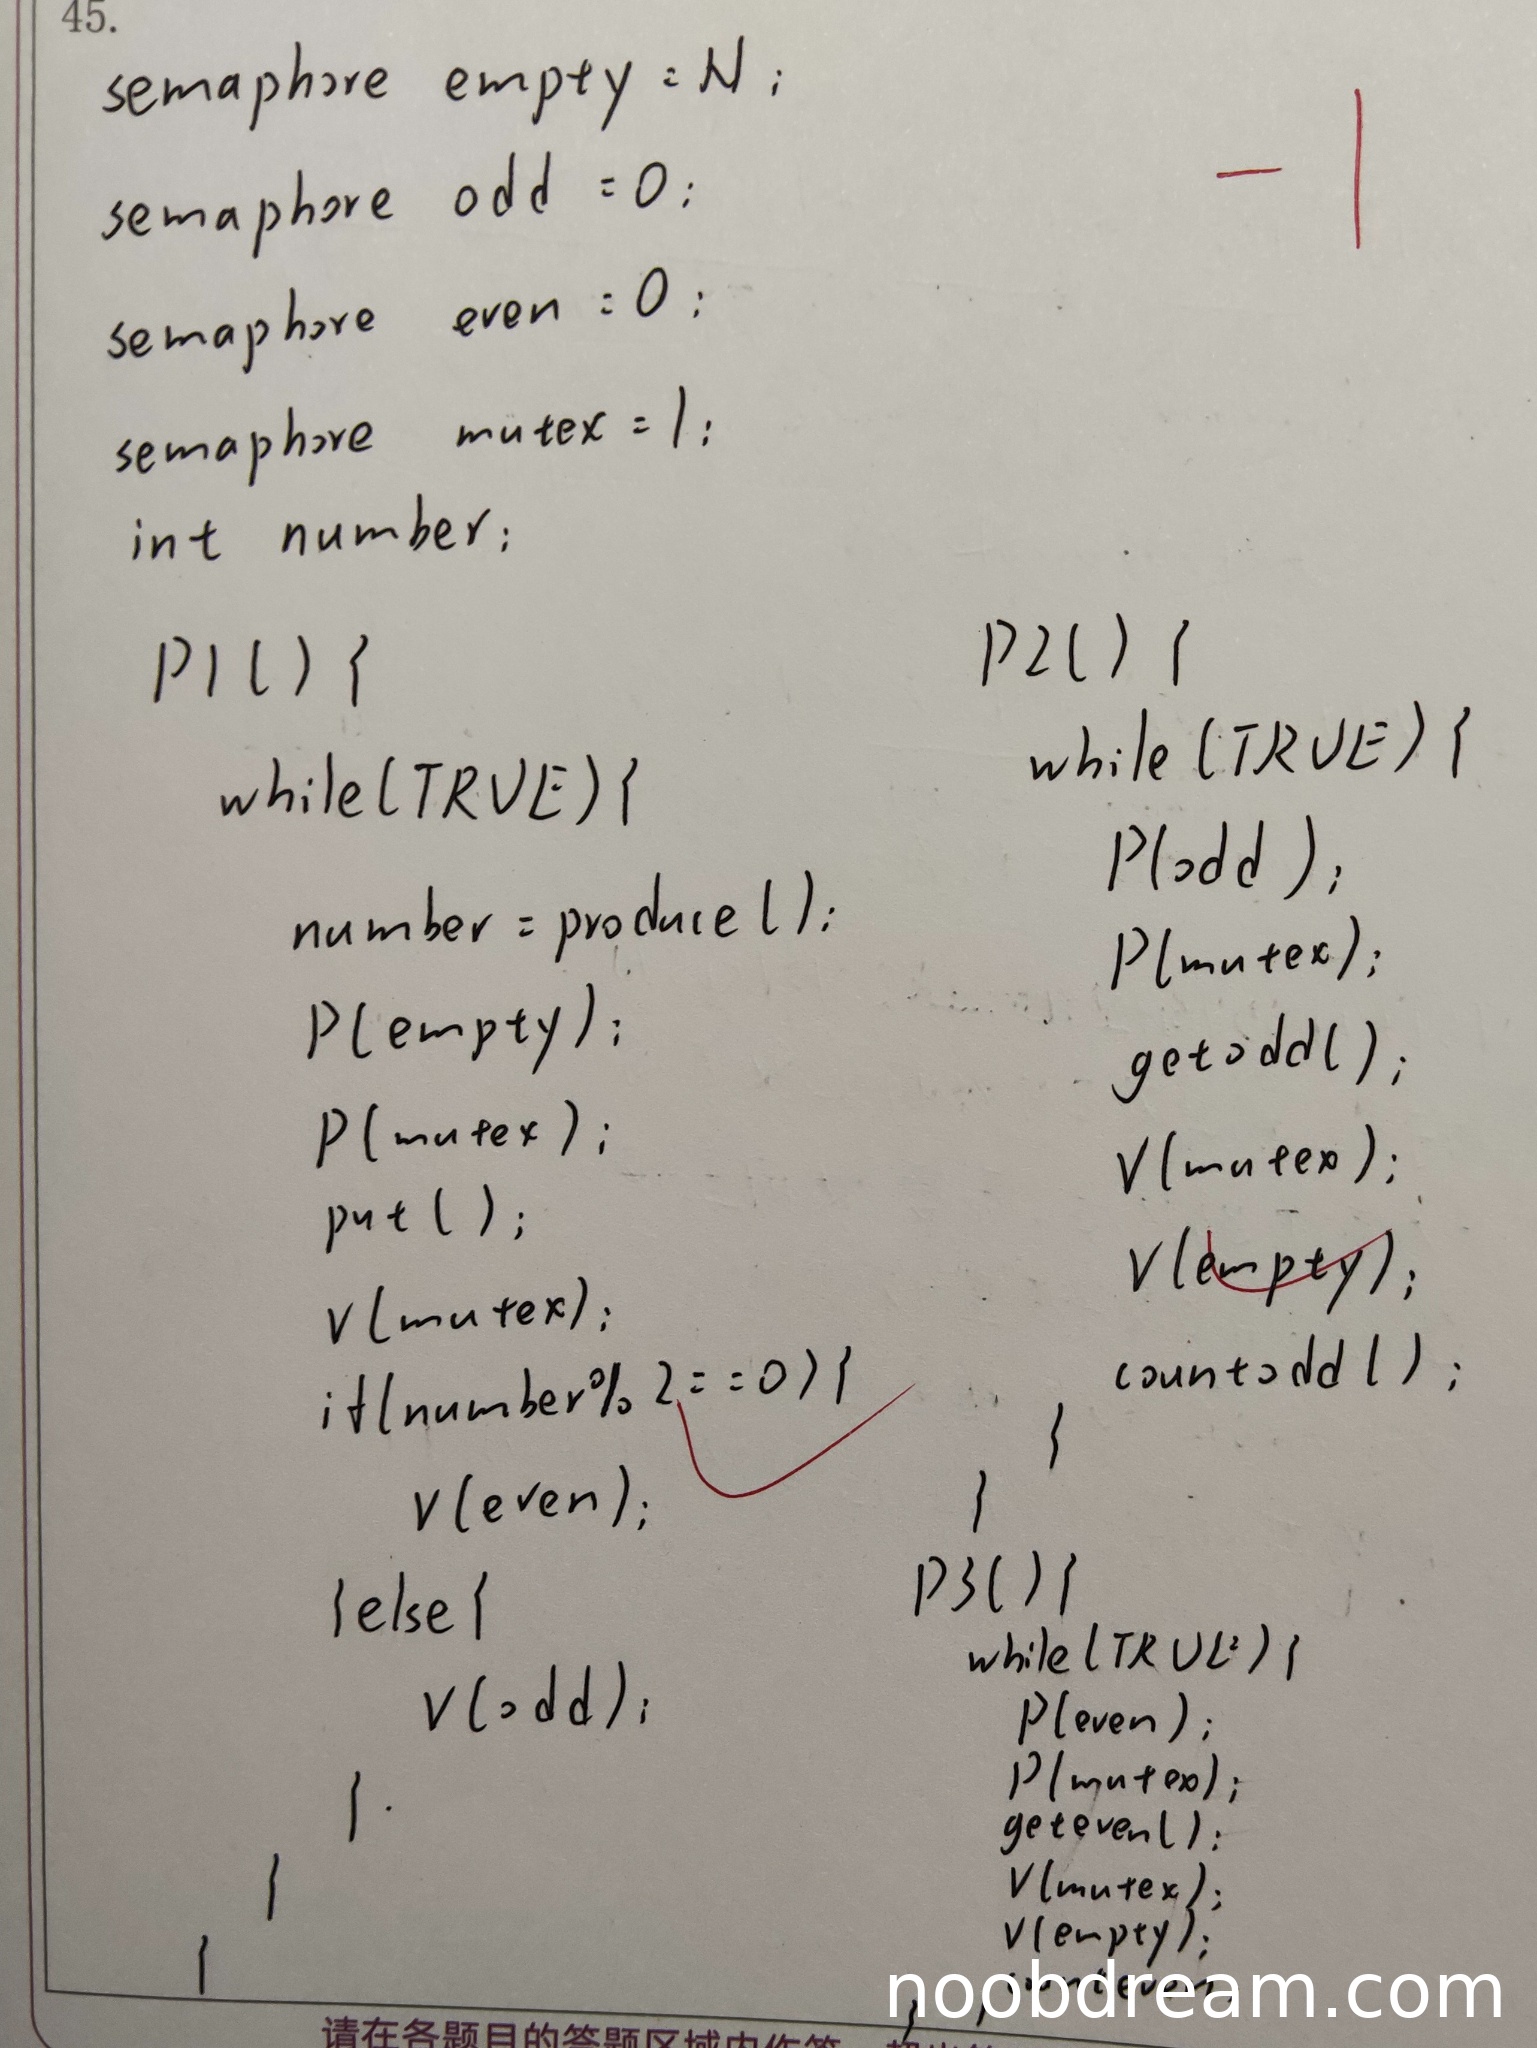 45.
semaphore empty = N;
semaphore odd = 0;
semaphore even = 0;
semaphore mutex = 1;
int number;
P1() {
while(TRUE){
number = produce();
P(empty);
P(mutex);
put();
V(mutex);
if(number%2==0){
V(even);
}else{
V(odd);
}
}
}
-1
P2() {
while(TRUE){
P(odd);
P(mutex);
getodd();
V(mutex);
V(empty);
countodd();
}
}
P3(){
while(TRUE){
P(even);
P(mutex);
geteven();
V(mutex);
V(empty);
}
}
请在各题目的答题区域内作答
noobdream.com